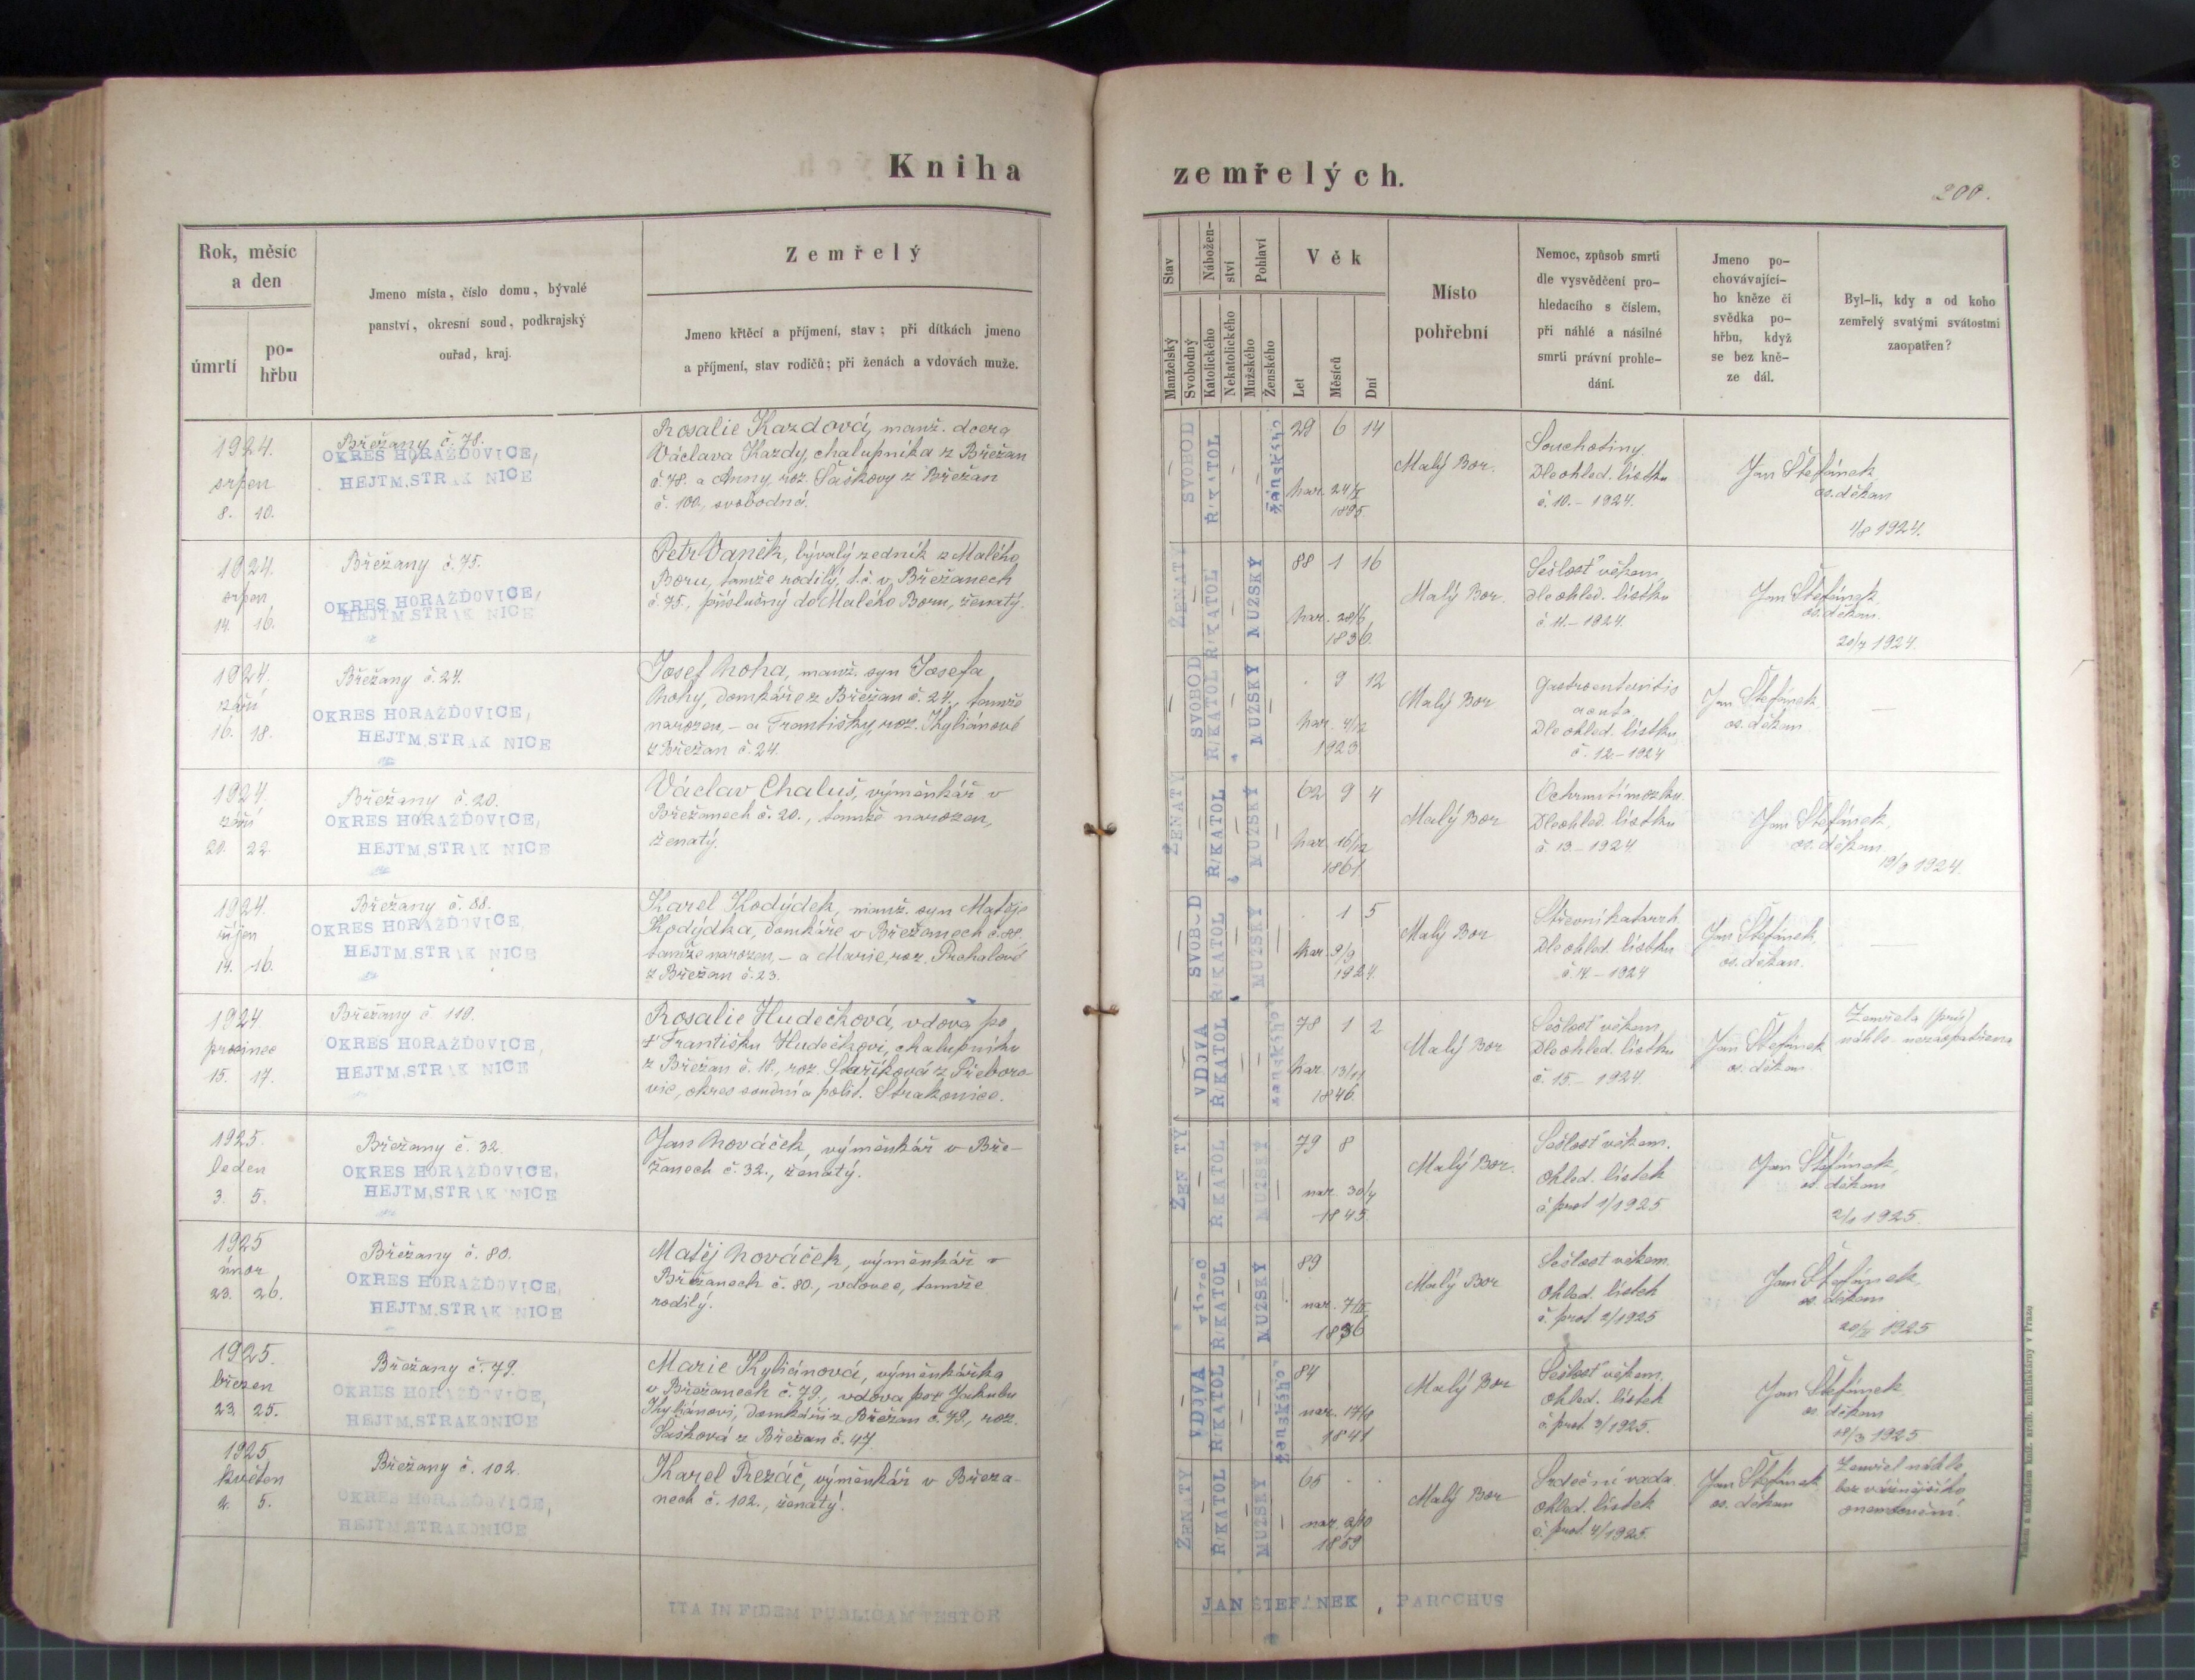 Kniha
zemřelých.
200.
Rok, měsíc
a den
úmrtí
po-
hřbu
Jmeno místa, číslo domu, bývalé
panství, okresní soud, podkrajský
ouřad, kraj.
Zemřelý
Jmeno křtěcí a příjmení, stav; při dítkách jmeno
a příjmení, stav rodičů; při ženách a vdovách muže.
Stav
Nábožen-
ství
Pohlaví
Manželský
Svobodný
Katolického
Nekatolického
Mužského
Ženského
Věk
Let
Měsíců
Dní
Místo
pohřební
Nemoc, způsob smrti
dle vysvědčení pro-
hledacího s číslem,
při náhlé a násilné
smrti právní prohle-
dání.
Jmeno po-
chovávající-
ho kněze či
svědka po-
hřbu, když
se bez kně-
ze dál.
Byl-li, kdy a od koho
zemřelý svatými svátostmi
zaopatřen?
1924.
srpen
8. 10.
Břežany č. 78.
OKRES HORAŽĎOVICE,
HEJTM,STRAK NICE
Rosalie Kazdová, manž. dcera
Václava Kazdy, chalupníka z Břežan
č. 78. a Anny, roz. Šaškovy z Břežan
č. 100., svobodná.
SVOBOD
Ř/KATOL
Žánského
29 6 14
Nar. 24/I
1895
Malý Bor.
Souchotiny.
Dle ohled. lístku
č. 10. - 1924.
Jan Štefánek,
os. děkan
1/8 1924.
1924.
srpen
14. 16.
Břežany č. 75.
OKRES HORAŽĎOVICE,
HEJTM,STRAK NICE
Petr Vaněk, bývalý zedník z Malého
Boru, tamže rodilý, t. č. v Břežanech
č. 75., příslušný do Malého Boru, ženatý.
ŽENATÝ
Ř/KATOL
MUŽSKÝ
88 1 16
Nar. 28/6
1836.
Malý Bor.
Sešlosť věkem,
Dle ohled. lístku
č. 11. - 1924.
Jan Štefánek,
os. děkan.
20/7 1924.
1924.
září
16. 18.
Břežany č. 24.
OKRES HORAŽĎOVICE,
HEJTM,STRAK NICE
Josef Noha, manž. syn Josefa
Nohy, domkáře z Břežan č. 24., tamže
narozen, - a Františky, roz. Kyliánové
z Břežan č. 24.
SVOBOD
Ř/KATOL
MUŽSKÝ
. 9 12
Nar. 4/12
1923.
Malý Bor
Gastroenteritis
acuta
Dle ohled. lístku
č. 12 - 1924
Jan Štefánek
os. děkan
—
1924.
září
20. 22.
Břežany č. 20.
OKRES HORAŽĎOVICE,
HEJTM,STRAK NICE
Václav Chaluš, výměnkář v
Břežanech č. 20., tamže narozen,
ženatý.
ŽENATÝ
Ř/KATOL
MUŽSKÝ
62 9 4
Nar. 16/12
1861
Malý Bor
Ochrnutí mozku.
Dle ohled. lístku
č. 13. - 1924.
Jan Štefánek,
os. děkan
19/9 1924.
1924.
říjen
14. 16.
Břežany č. 88.
OKRES HORAŽĎOVICE,
HEJTM,STRAK NICE
Karel Kodýdek, manž. syn Matěje
Kodýdka, domkáře v Břežanech č. 88.
tamže narozen, - a Marie, roz. Prahalové
z Břežan č. 23.
SVOBOD
Ř/KATOL
MUŽSKÝ
. 1 5
Nar. 9/9
1924.
Malý Bor
Střevní katarrh.
Dle ohled. lístku
č. 14. - 1924
Jan Štefánek,
os. děkan.
—
1924
prosinec
15. 17.
Břežany č. 118.
OKRES HORAŽĎOVICE,
HEJTM,STRAK NICE
Rosalie Hudečková, vdova po
† Františku Hudečkovi, chalupníku
z Břežan č. 18., roz. Staříková z Přeboro-
vic, okres soudní a polit. Strakonice.
VDOVA
Ř/KATOL
ženského
78 1 2
Nar. 13/11
1846.
Malý Bor
Sešlosť věkem,
Dle ohled. lístku
č. 15. - 1924.
Jan Štefánek
os. děkan.
Zemřela (prý)
náhle - nezaopatřena
1925.
leden
3. 5.
Břežany č. 32.
OKRES HORAŽĎOVICE,
HEJTM,STRAK NICE
Jan Nováček, výměnkář v Bře-
žanech č. 32., ženatý.
ŽEN TÝ
Ř/KATOL
MUŽSKÝ
79 8
nar. 30/4
1845.
Malý Bor.
Sešlosť věkem.
Ohled. lístek
č. prot 1/1925
Jan Štefánek,
os. děkan
2/1 1925.
1925
únor
23. 26.
Břežany č. 80.
OKRES HORAŽĎOVICE,
HEJTM,STRAK NICE
Matěj Nováček, výměnkář v
Břežanech č. 80., vdovec, tamže
rodilý.
vdovec
Ř/KATOL
MUŽSKÝ
89
nar. 7/II
1836
Malý Bor
Sešlost věkem.
Ohled. lístek
č. prot. 2/1925
Jan Štefánek,
os. děkan
20/II 1925
1925.
březen
23. 25.
Břežany č. 79.
OKRES HORAŽĎOVICE,
HEJTM,STRAKONICE
Marie Kyliánová, výměnkářka
v Břežanech č. 79., vdova po † Jakubu
Kyliánovi, domkáři z Břežan č. 79., roz.
Šašková z Břežan č. 47.
VDOVA
Ř/KATOL
Ženského
84
nar. 17/8
1841
Malý Bor
Sešlosť věkem.
Ohled. lístek
č. prot. 3/1925.
Jan Štefánek
os. děkan
18/3 1925
1925
květen
2. 5.
Břežany č. 102.
OKRES HORAŽĎOVICE,
HEJTM,STRAKONICE
Karel Řezáč, výměnkář v Břeža-
nech č. 102., ženatý.
ŽENATÝ
Ř/KATOL
MUŽSKÝ
65 . .
nar. 2/10
1859
Malý Bor
Srdeční vada
ohled. lístek
č. prot. 4/1925.
Jan Štefánek
os. děkan
Zemřel náhle
bez vážnějšího
onemocnění.
ITA IN FIDEM PUBLICAM TESTOR
JAN ŠTEFÁNEK, PAROCHUS